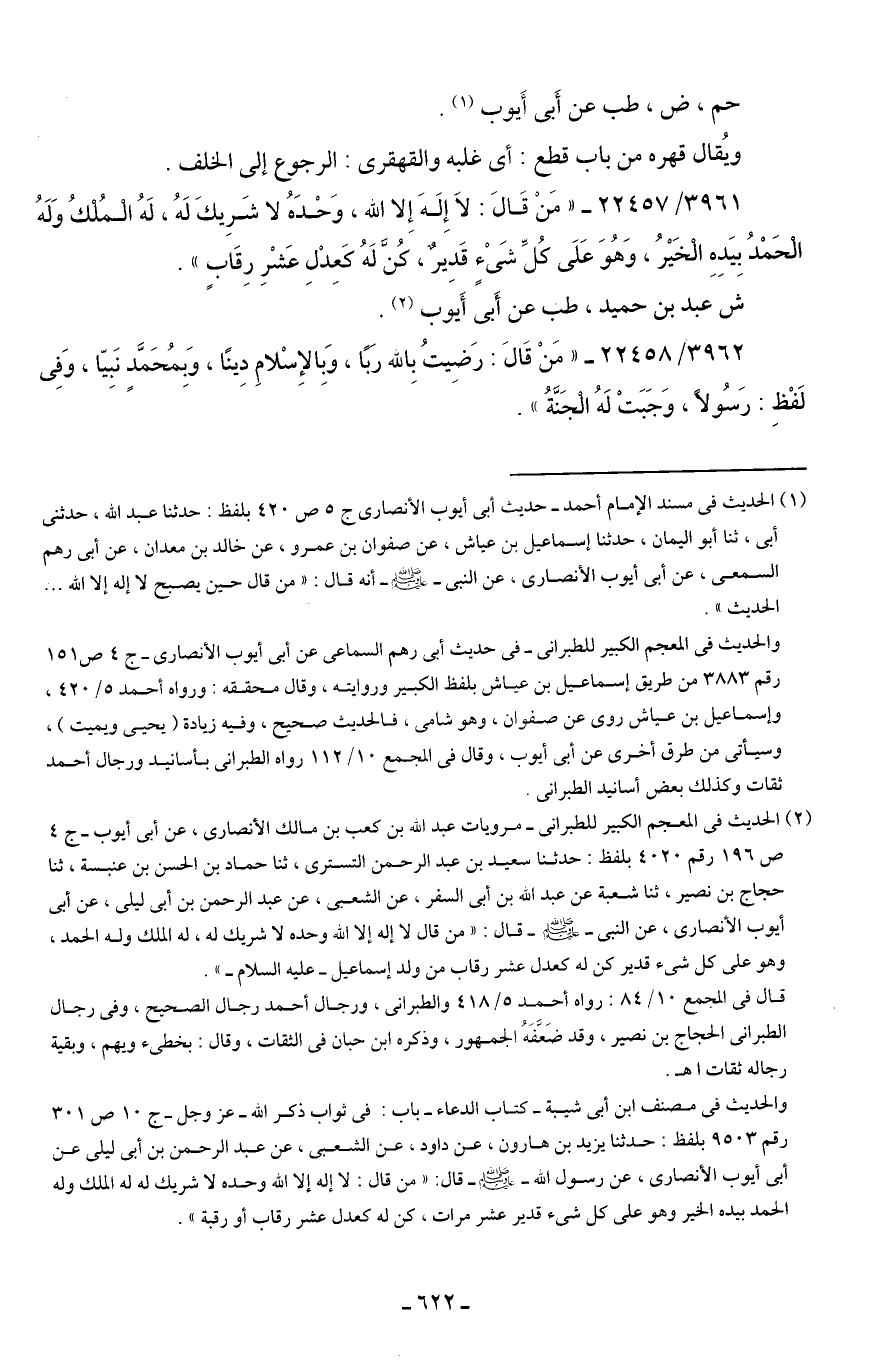 حم ، ض ، طب عن أَبى أَيوب (١) .
ويُقال قهره من باب قطع : أى غلبه والقهقرى : الرجوع إلى الخلف .
٣٩٦١/ ٢٢٤٥٧ ـ « مَنْ قَالَ : لاَ إِلَهَ إِلا الله ، وَحْدَهُ لا شَرِيكَ لَهُ ، لَهُ الْمُلْكُ وَلَهُ
الْحَمْدُ بِيَدِهِ الْخَيْرُ ، وَهُوَ عَلَى كُلِّ شَىْءٍ قَدِيرٌ ، كُنَّ لَهُ كَعِدْلِ عَشْرِ رِقَابٍ » .
ش عبد بن حميد ، طب عن أَبى أَيوب (٢) .
٣٩٦٢/ ٢٢٤٥٨ ـ « مَنْ قَالَ : رَضِيتُ بِالله رَبّا ، وَبِالإِسْلامِ دِينًا ، وَبِمُحَمَّدٍ نَبِيّا ، وَفِى
لَفْظِ : رَسُولاً ، وَجَبَتْ لَهُ الْجَنَّةُ » .
(١) الحديث فى مسند الإمام أحمد ـ حديث أبى أيوب الأنصارى ج ٥ ص ٤٢٠ بلفظ : حدثنا عبد الله ، حدثنى
أبى ، ثنا أبو اليمان ، حدثنا إسماعيل بن عياش ، عن صفوان بن عمرو ، عن خالد بن معدان ، عن أبى رهم
السمعى ، عن أبى أيوب الأنصارى ، عن النبى ـ ﷺ ـ أنه قال : « من قال حين يصبح لا إله إلا الله ...
الحديث » .
والحديث فى المعجم الكبير للطبرانى ـ فى حديث أبى رهم السماعى عن أبى أيوب الأنصارى ـ ج ٤ ص١٥١
رقم ٣٨٨٣ من طريق إسماعيل بن عياش بلفظ الكبير وروايته ، وقال محققه : ورواه أحمد ٥/ ٤٢٠ ،
وإسماعيل بن عياش روى عن صفوان ، وهو شامى ، فالحديث صحيح ، وفيه زيادة ( يحيى ويميت ) ،
وسيأتى من طرق أخرى عن أبى أيوب ، وقال فى المجمع ١٠/ ١١٢ رواه الطبرانى بأسانيد ورجال أحمد
ثقات وكذلك بعض أسانيد الطبرانى .
(٢) الحديث فى المعجم الكبير للطبرانى ـ مرويات عبد الله بن كعب بن مالك الأنصارى ، عن أبى أيوب ـ ج ٤
ص ١٩٦ رقم ٤٠٢٠ بلفظ : حدثنا سعيد بن عبد الرحمن التسترى ، ثنا حماد بن الحسن بن عنبسة ، ثنا
حجاج بن نصير ، ثنا شعبة عن عبد الله بن أبى السفر ، عن الشعبى ، عن عبد الرحمن بن أبى ليلى ، عن أبى
أيوب الأنصارى ، عن النبى ـ ﷺ ـ قال : « من قال لا إله إلا الله وحده لا شريك له ، له الملك وله الحمد ،
وهو على كل شىء قدير كن له كعدل عشر رقاب من ولد إسماعيل ـ عليه السلام ـ » .
قال فى المجمع ١٠/ ٨٤ : رواه أحمد ٥/ ٤١٨ والطبرانى ، ورجال أحمد رجال الصحيح ، وفى رجال
الطبرانى الحجاج بن نصير ، وقد ضَعَّفَهُ الجمهور ، وذكره ابن حبان فى الثقات ، وقال : يخطىء ويهم ، وبقية
رجاله ثقات ا هـ .
والحديث فى مصنف ابن أبى شيبة ـ كتاب الدعاء ـ باب : فى ثواب ذكر الله ـ عز وجل ـ ج ١٠ ص ٣٠١
رقم ٩٥٠٣ بلفظ : حدثنا يزيد بن هارون ، عن داود ، عن الشعبى ، عن عبد الرحمن بن أبى ليلى عن
أبى أيوب الأنصارى ، عن رسول الله ـ ﷺ ـ قال: « من قال : لا إله إلا الله وحده لا شريك له له الملك وله
الحمد بيده الخير وهو على كل شىء قدير عشر مرات ، كن له كعدل عشر رقاب أو رقبة » .
ـ ٦٢٢ ـ